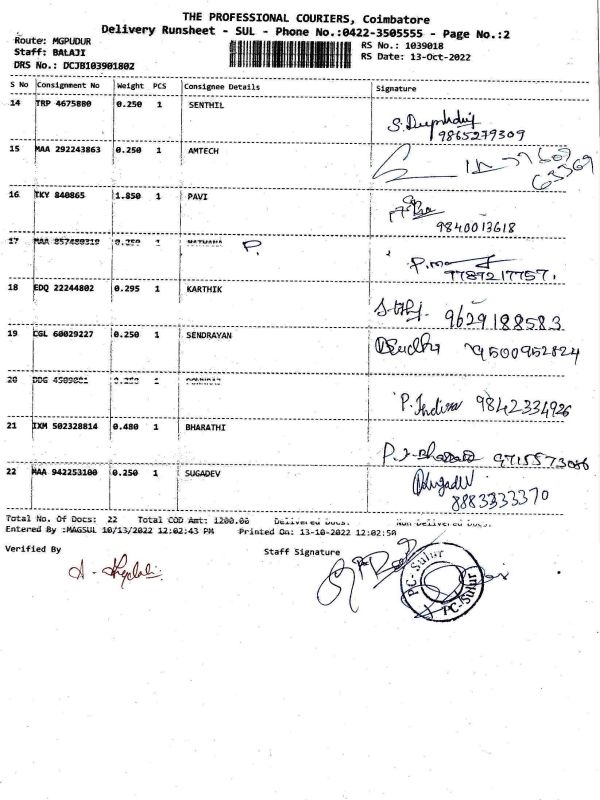 THE PROFESSIONAL COURIERS, Coimbatore
Delivery Runsheet - SUL - Phone No.:0422-3505555 - Page No.:2
Route: MGPUDUR
Staff: BALAJI
DRS No.: DCJB1039018O2
RS No.: 1039018
RS Date: 13-Oct-2022
S No Consignment No Weight PCS Consignee Details Signature
14 TRP 4675880 0.250 1 SENTHIL
9865279309
15 MAA 292243863 0.250 1 AMTECH
63369
16 TKY 840865 1.850 1 PAVI
9840013618
17 MAA 1 P.
7787217757
18 EDQ 22244802 0.295 1 KARTHIK
9629188583
19 CGL 60029227 0.250 1 SENDRAYAN
Sudha 9500952824
20 DDG 1
P. Indira 9842334926
21 IXM 502328814 0.480 1 BHARATHI
9715573086
22 MAA 942253100 0.250 1 SUGADEV
Sugadev
8883333370
Total No. Of Docs: 22 Total COD Amt: 1200.00 Delivered Docs: Non Delivered Docs:
Entered By :MAGSUL 10/13/2022 12:02:43 PM Printed On: 13-10-2022 12:02:50
Verified By Staff Signature
PC-Sulur
PC-Sulur